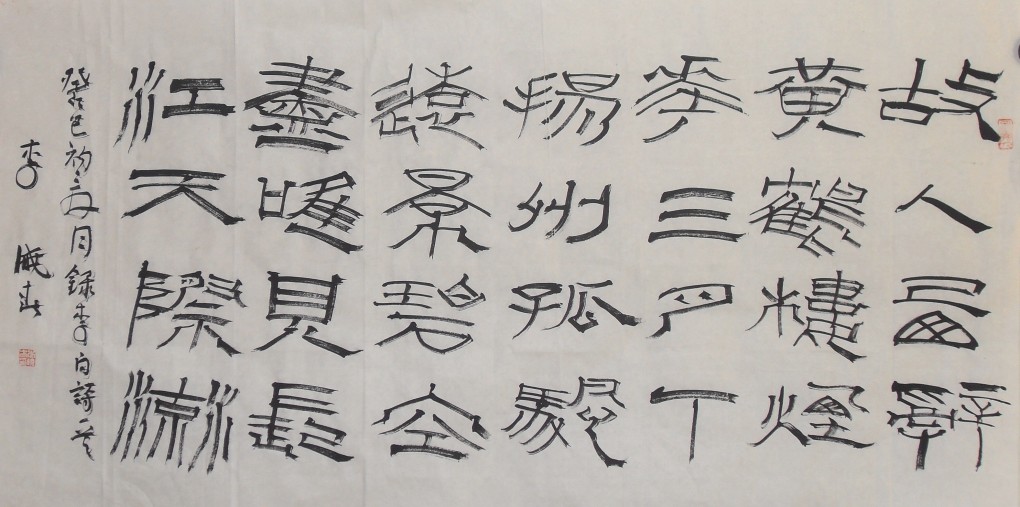 故人西辭
黄鶴樓煙
華三月下
揚州孤颿
遠景碧空
盡唯見長
江天際流
癸巳初夏月錄李白詩一首
李